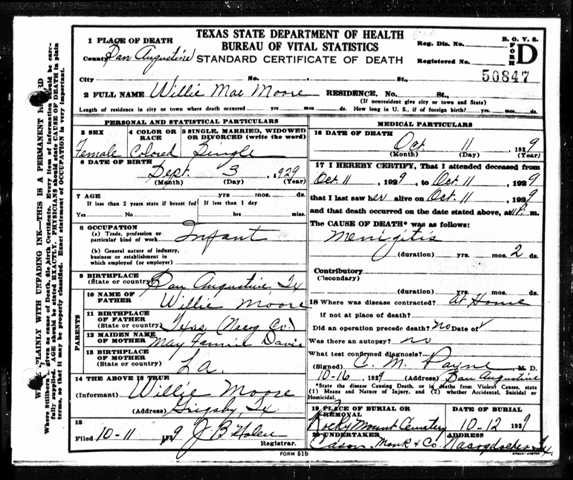 TEXAS STATE DEPARTMENT OF HEALTH
BUREAU OF VITAL STATISTICS
STANDARD CERTIFICATE OF DEATH
B. O. V. S.
FORM D
Reg. Dis. No.
Registered No.
50847
1 PLACE OF DEATH
County San Augustine
City No. St.
2 FULL NAME Willie Mae Moore RESIDENCE. No. St.
(If nonresident give city or town and State)
Length of residence in city or town where death occurred yrs. mos. ds. How long in U. S., if of foreign birth? yrs. mos. ds.
PERSONAL AND STATISTICAL PARTICULARS
3 SEX 4 COLOR OR RACE 5 SINGLE, MARRIED, WIDOWED OR DIVORCED (write the word)
Female Colored Single
6 DATE OF BIRTH
Sept. 3 1929
(Month) (Day) (Year)
7 AGE yrs. mos. ds.
If less than 2 years state if breast fed If less than 1 day
Yes No hrs. min.
8 OCCUPATION
(a) Trade, profession or particular kind of work Infant
(b) General nature of industry, business or establishment in which employed (or employer)
9 BIRTHPLACE
(State or country) San Augustine, Tx
10 NAME OF FATHER Willie Moore
11 BIRTHPLACE OF FATHER
(State or country) Texas
12 MAIDEN NAME OF MOTHER May Fannie Davis
13 BIRTHPLACE OF MOTHER
(State or country) La.
PARENTS
14 THE ABOVE IS TRUE
(Informant) Willie Moore
(Address) Grigsby, Tx
15
Filed 10-11 1929 J B
Registrar.
MEDICAL PARTICULARS
16 DATE OF DEATH
Oct 11 1929
(Month) (Day) (Year)
17 I HEREBY CERTIFY, That I attended deceased from
Oct 11, 1929, to Oct 11, 1929
that I last saw her alive on Oct 11, 1929
and that death occurred on the date stated above, at m.
The CAUSE OF DEATH* was as follows:
Menigitis
(duration) yrs. mos. 2 ds.
Contributory
(Secondary)
(duration) yrs. mos. ds.
18 Where was disease contracted? At Home
If not at place of death?
Did an operation precede death? no Date of
Was there an autopsy? no
What test confirmed diagnosis?
(Signed) C. M. Payne M. D.
10-16, 1929 (Address) San Augustine
*State the disease Causing Death, or in deaths from Violent Causes, state (1) Means and Nature of Injury, and (2) whether Accidental, Suicidal or Homicidal.
19 PLACE OF BURIAL OR REMOVAL DATE
Rocky Mount Cemetery 10-12 1929
20 UNDERTAKER ADDRESS
Cason Monk & Co Nacogdoches Tx
FORM 515